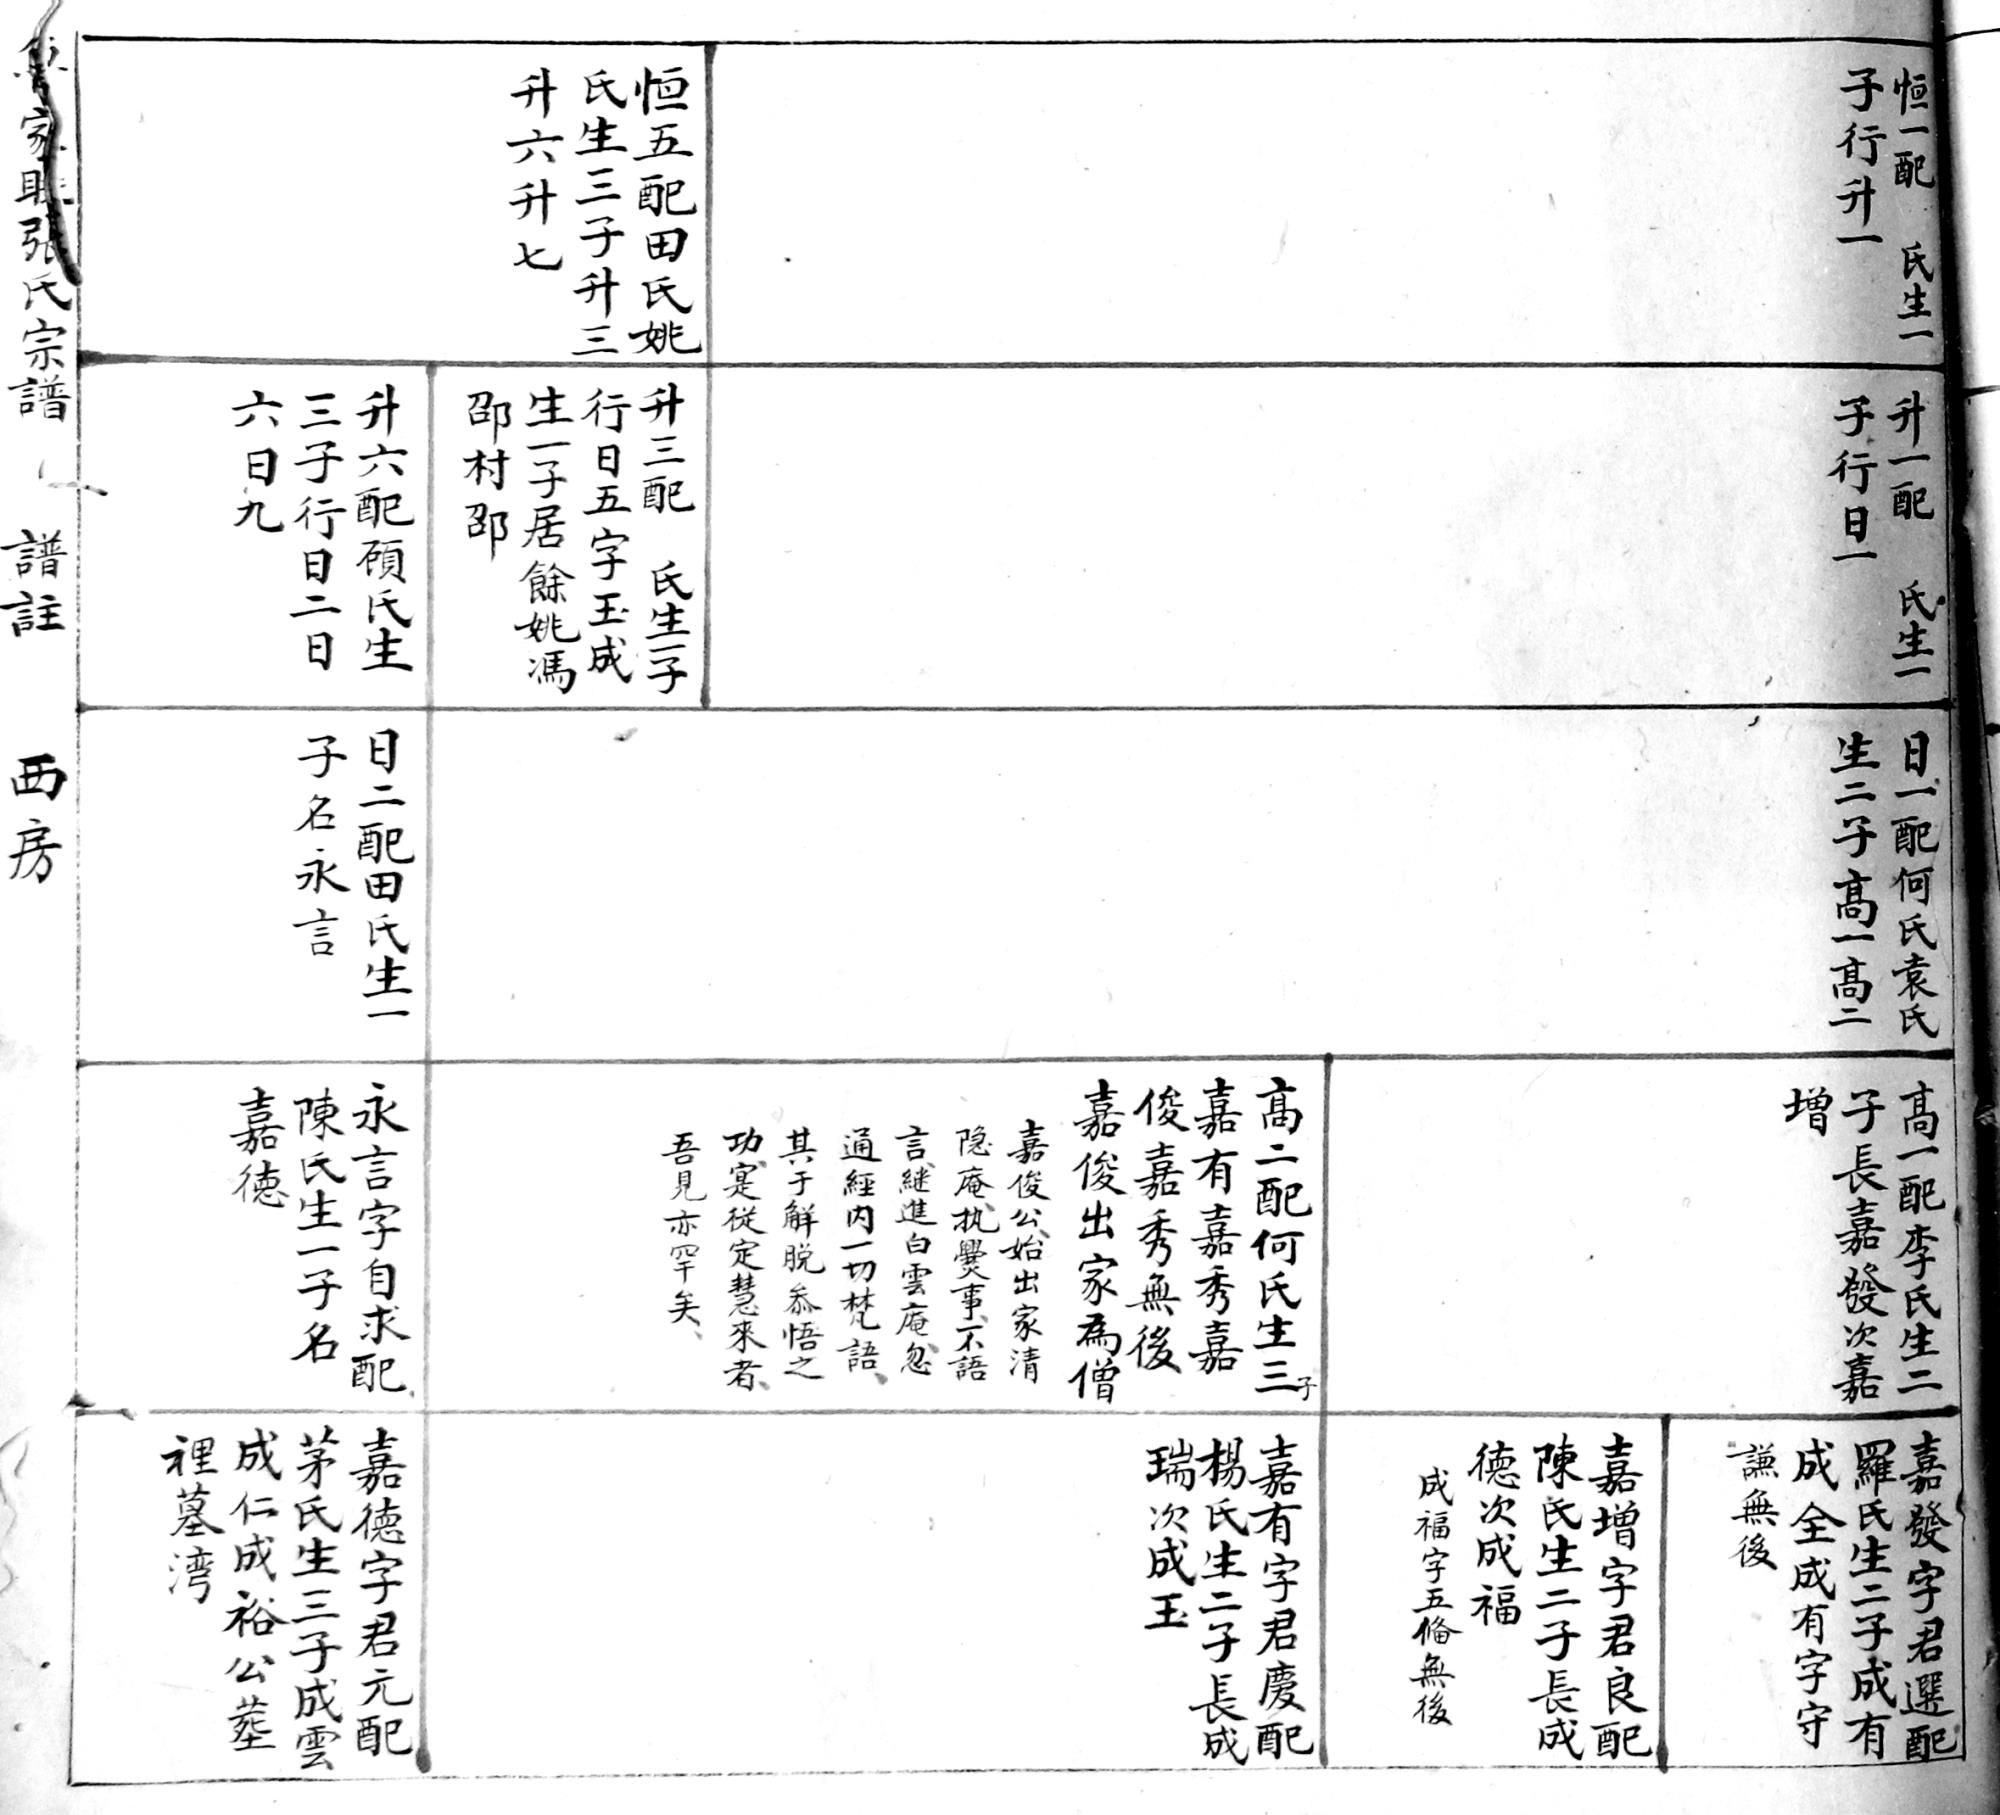 恒一配 氏生一
子行升一
恒五配田氏姚
氏生三子升三
升六升七
升一配 氏生一
子行日一
升三配 氏生一子
行日五字玉成
生一子居餘姚馮
邵村邵
升六配顧氏生
三子行日二日
六日九
日一配何氏袁氏
生二子高一高二
日二配田氏生一
子名永言
高一配李氏生二
子長嘉發次嘉
增
高二配何氏生三子
嘉有嘉秀嘉
俊嘉秀無後
嘉俊出家為僧
嘉俊公、始出家清
隐庵、执爨事、不語
言、継進白雲庵、忽
通經内一切梵語、
其于解脱叅悟之
功、寔從定慧來者、
吾見亦罕矣、
永言字自求配
陳氏生一子名
嘉德
嘉發字君選配
羅氏生二子成有
成全成有字守
謙無後
嘉增字君良配
陳氏生二子長成
德次成福
成福字五脩無後
嘉有字君慶配
楊氏生二子長成
瑞次成玉
嘉德字君元配
茅氏生三子成雲
成仁成裕公塟
裡墓湾
家張氏宗譜 譜註 西房